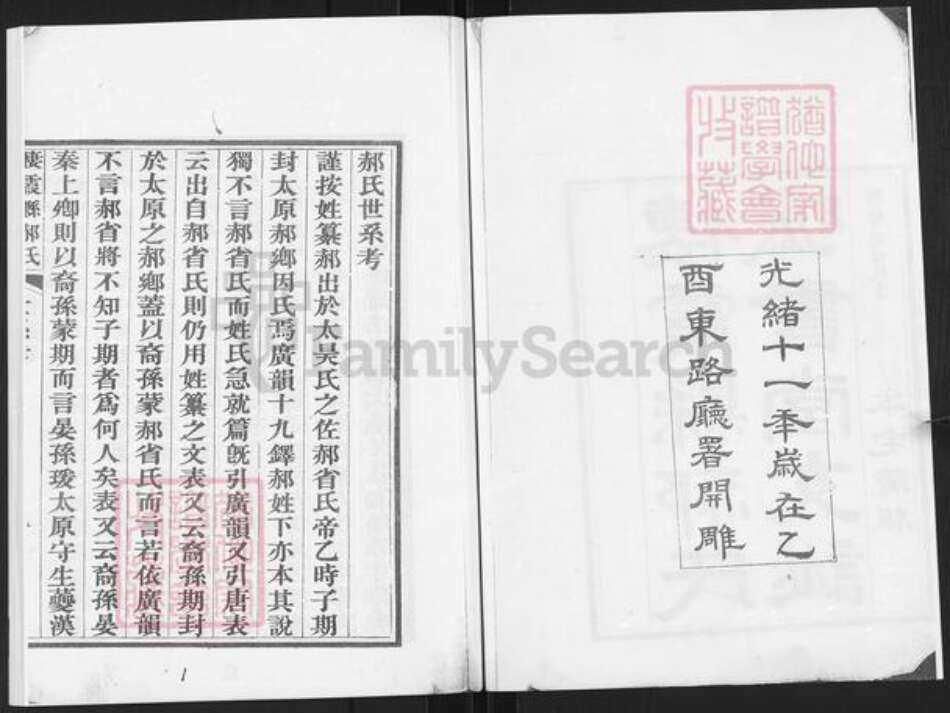 光緒十一年歲在乙
酉東路廳署開雕
猶他家
譜學會
收藏
郝氏世系考
謹按姓纂郝出於太昊氏之佐郝省氏帝乙時子期
封太原郝鄉因氏焉廣韻十九鐸郝姓下亦本其說
獨不言郝省氏而姓氏急就篇旣引廣韻又引唐表
云出自郝省氏則仍用姓纂之文表又云裔孫期封
於太原之郝鄉蓋以裔孫蒙郝省氏而言若依廣韻
不言郝省將不知子期者為何人矣表又云裔孫晏
秦上卿則以裔孫蒙期而言晏孫瑗太原守生虁漢
棲霞縣郝氏
FamilySearch
1